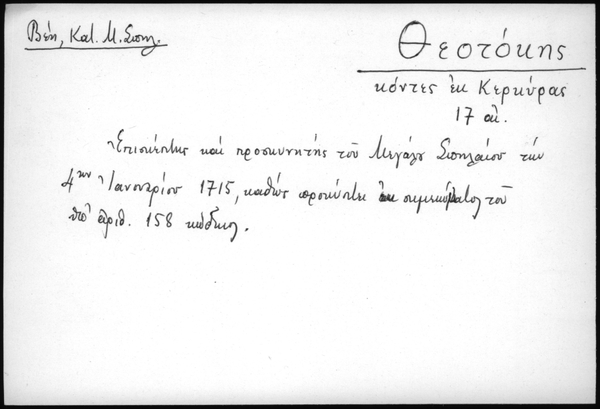 Βέη, Κατ. Μ. Σπηλ.
Θεοτόκης
κόντες ἐκ Κερκύρας
17 αἰ.
Ἐπισκέπτης καὶ προσκυνητὴς τοῦ Μεγάλου Σπηλαίου τὴν
4ην Ἰανουαρίου 1715, καθὼς προκύπτει ἐκ σημειώματος τοῦ
ὑπ' ἀριθ. 158 κώδικος.